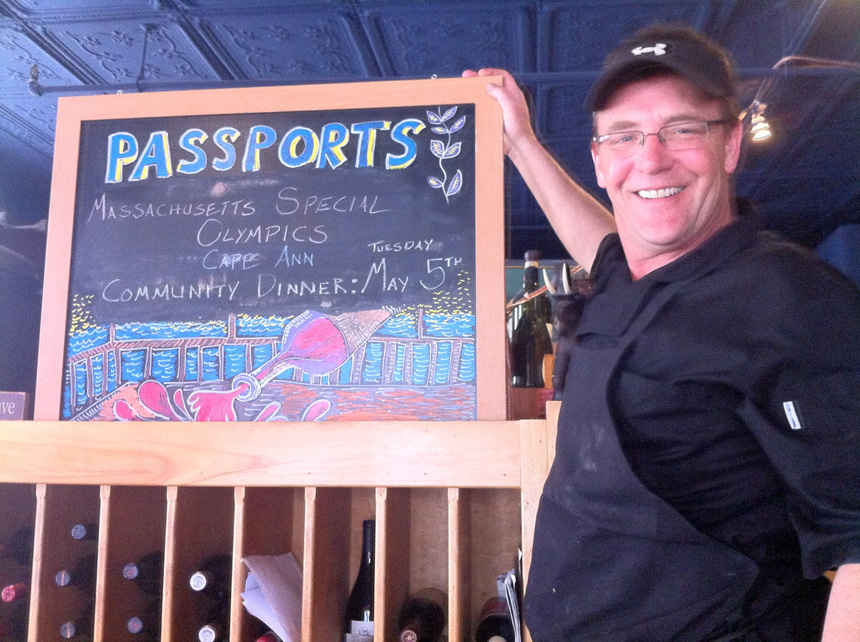 PASSPORTS
MASSACHUSETTS SPECIAL
OLYMPICS
CAPE ANN
TUESDAY
COMMUNITY DINNER: MAY 5TH